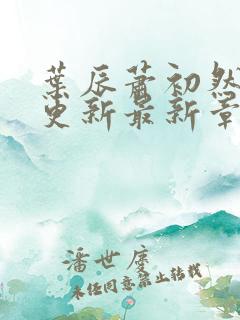 葉辰蕭初然
更新最新章
潘世虔
未经同意禁止转载